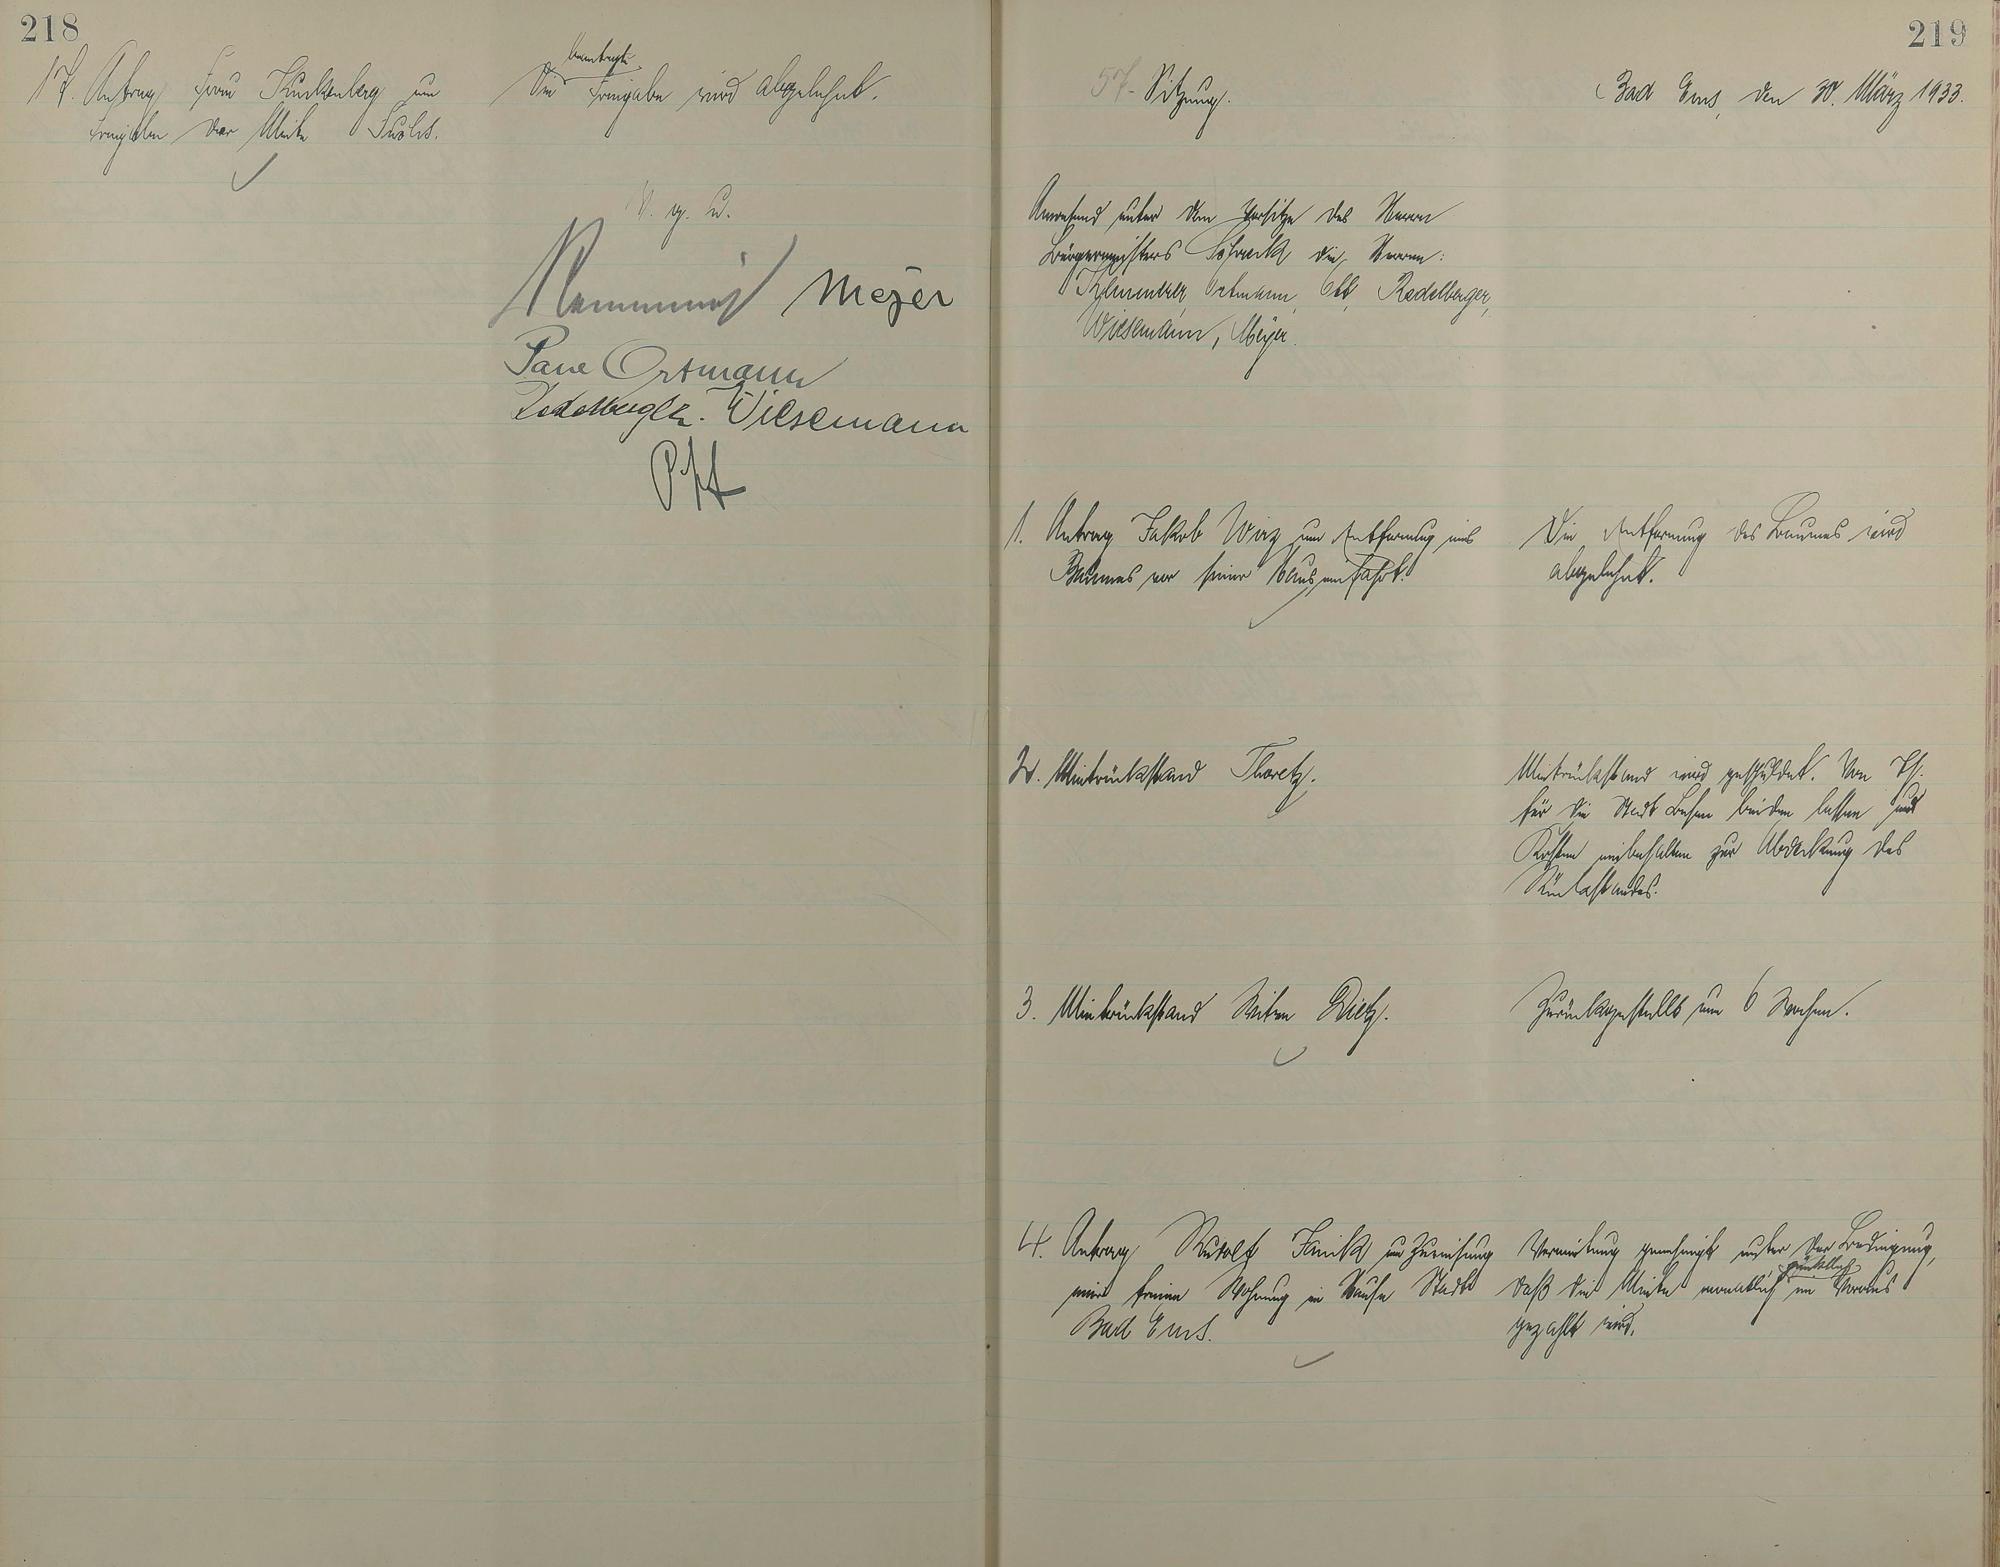 218
17. Antrag Frau Kuckenberg um
Freigabe der Miete Fuchs.
beantragte
Die Freigabe wird abgelehnt.
V. g. u.
Meyer
Paul Ortmann
Redelberger. Wiesemann
Ott
219
57. Sitzung.
Bad Ems, den 30. März 1933.
Anwesend unter dem Vorsitze des Herrn
Bürgermeisters Schreck die Herren:
Ortmann, Ott, Redelberger,
Wiesemann, Meyer.
1. Antrag Jakob Wirz um Entfernung eines
Baumes vor seiner Hauseinfahrt.
Die Entfernung des Baumes wird
abgelehnt.
2. Mietrückstand Thoretz.
Mietrückstand wird gestundet. Von Th.
für die Stadt lassen und
Kosten einbehalten zur Abdeckung des
Rückstandes.
3. Mietrückstand Witwe Dietz.
Zurückgestellt um 6 Wochen.
4. Antrag Rudolf Janik um Zuweisung
einer freien Wohnung im Hause Stadt
Bad Ems.
Vermietung genehmigt unter der Bedingung,
pünktlich
daß die Miete monatlich im Voraus
gezahlt wird.